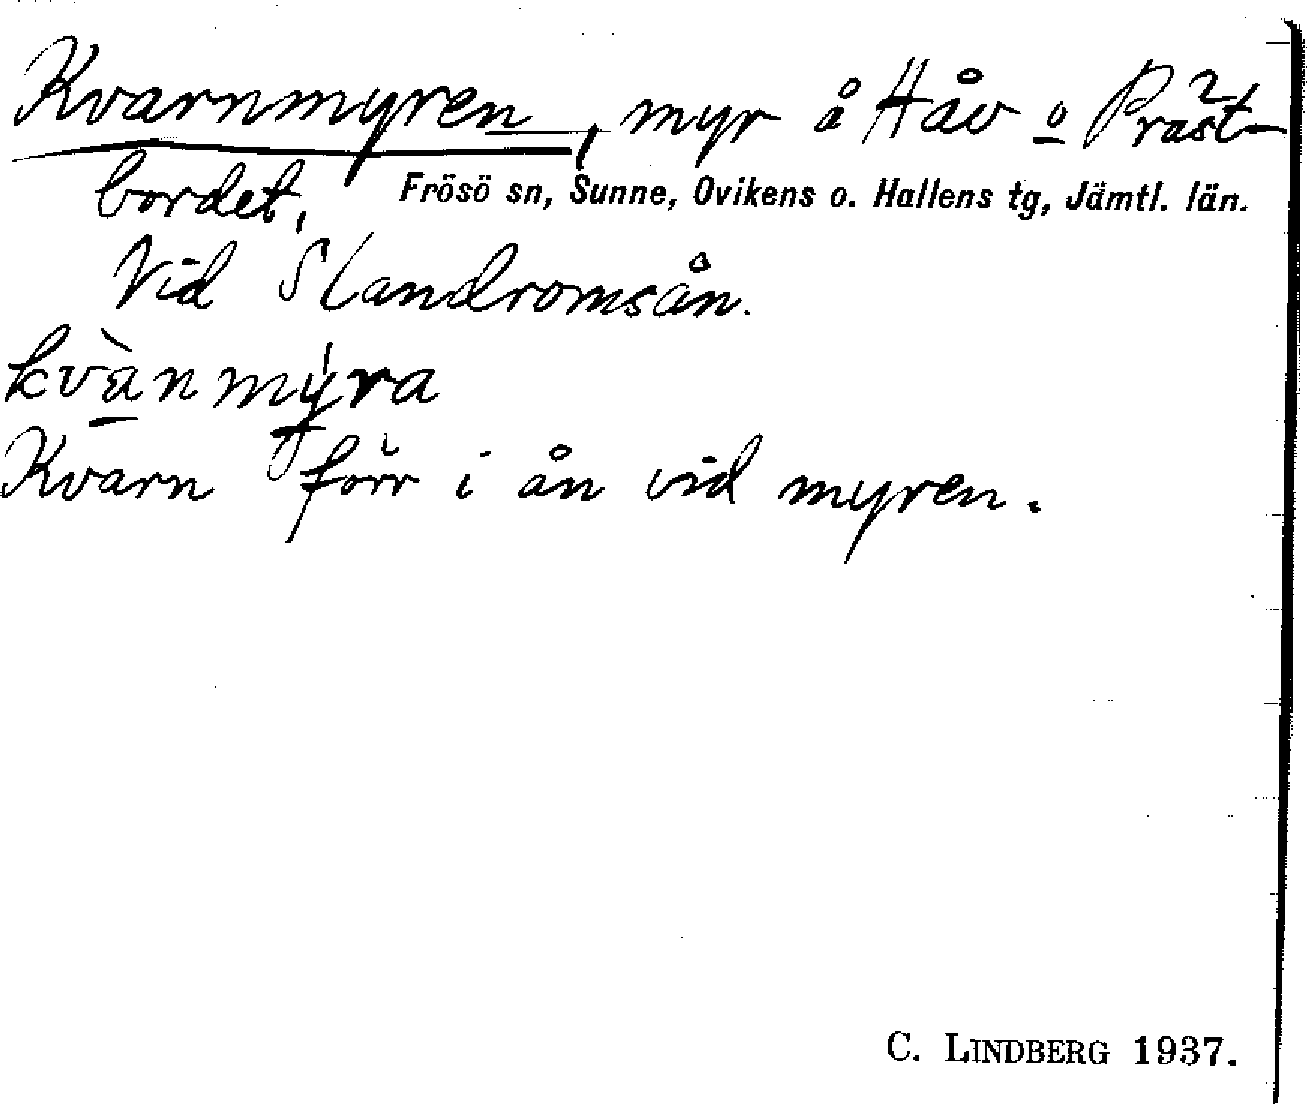 Kvarnmyren, myr å Håv o Präst-
bordet, Frösö sn, Sunne, Ovikens o. Hallens tg, Jämtl. län.
Vid Slandromsån.
kvànmýra
Kvarn förr i ån vid myren.
C. LINDBERG 1937.